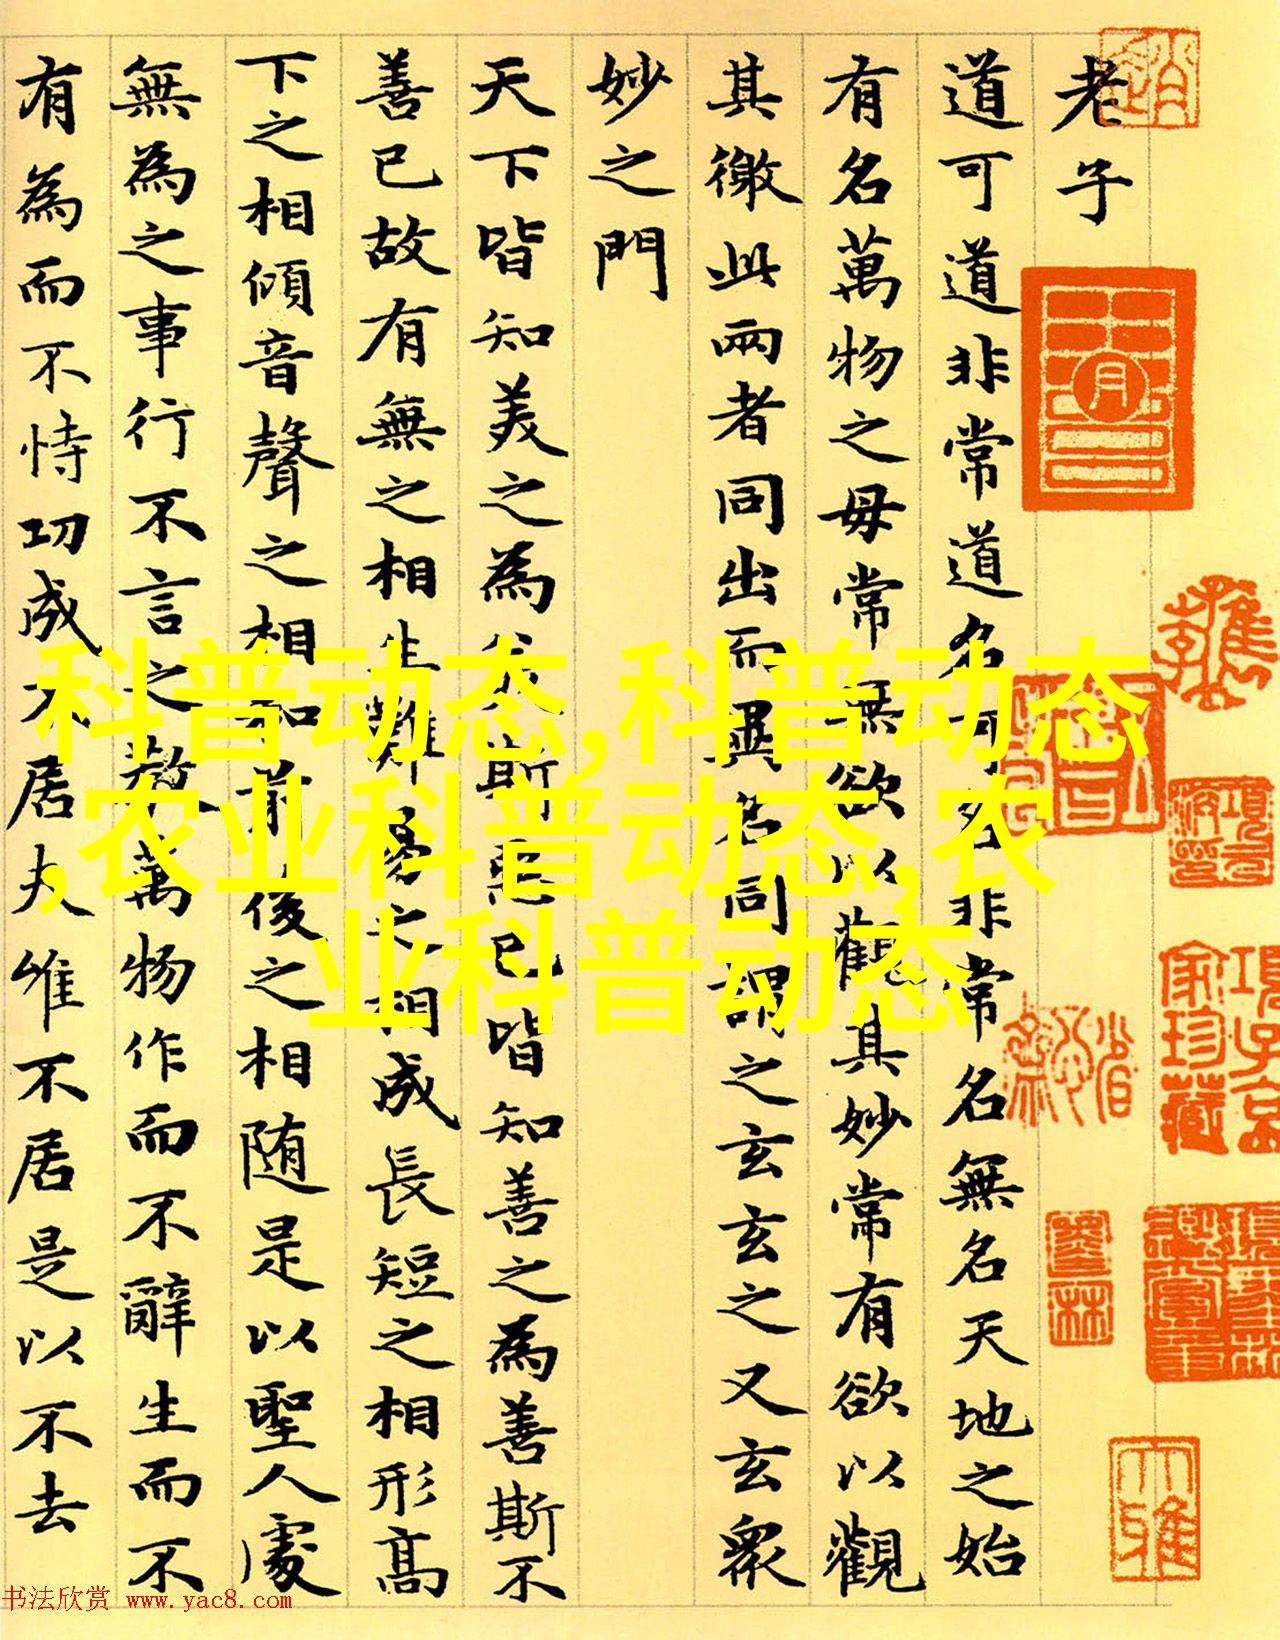 老子
道可道非常道名可名非常名無名天地之始
有名萬物之母常無欲以觀其妙常有欲以觀
其徼此兩者同出而異名同謂之玄玄之又玄衆
妙之門
天下皆知美之為美斯惡已皆知善之為善斯不
善已故有無之相生難易之相成長短之相形高
下之相傾音聲之相和前後之相随是以聖人處
無為之事行不言之教萬物作而不辭生而不
有為而不恃功成不居夫唯不居是以不去
科普动态,科普动态
,农业科普动态,农
业科普动态
項子京
家珍藏
书法欣赏 www.yac8.com